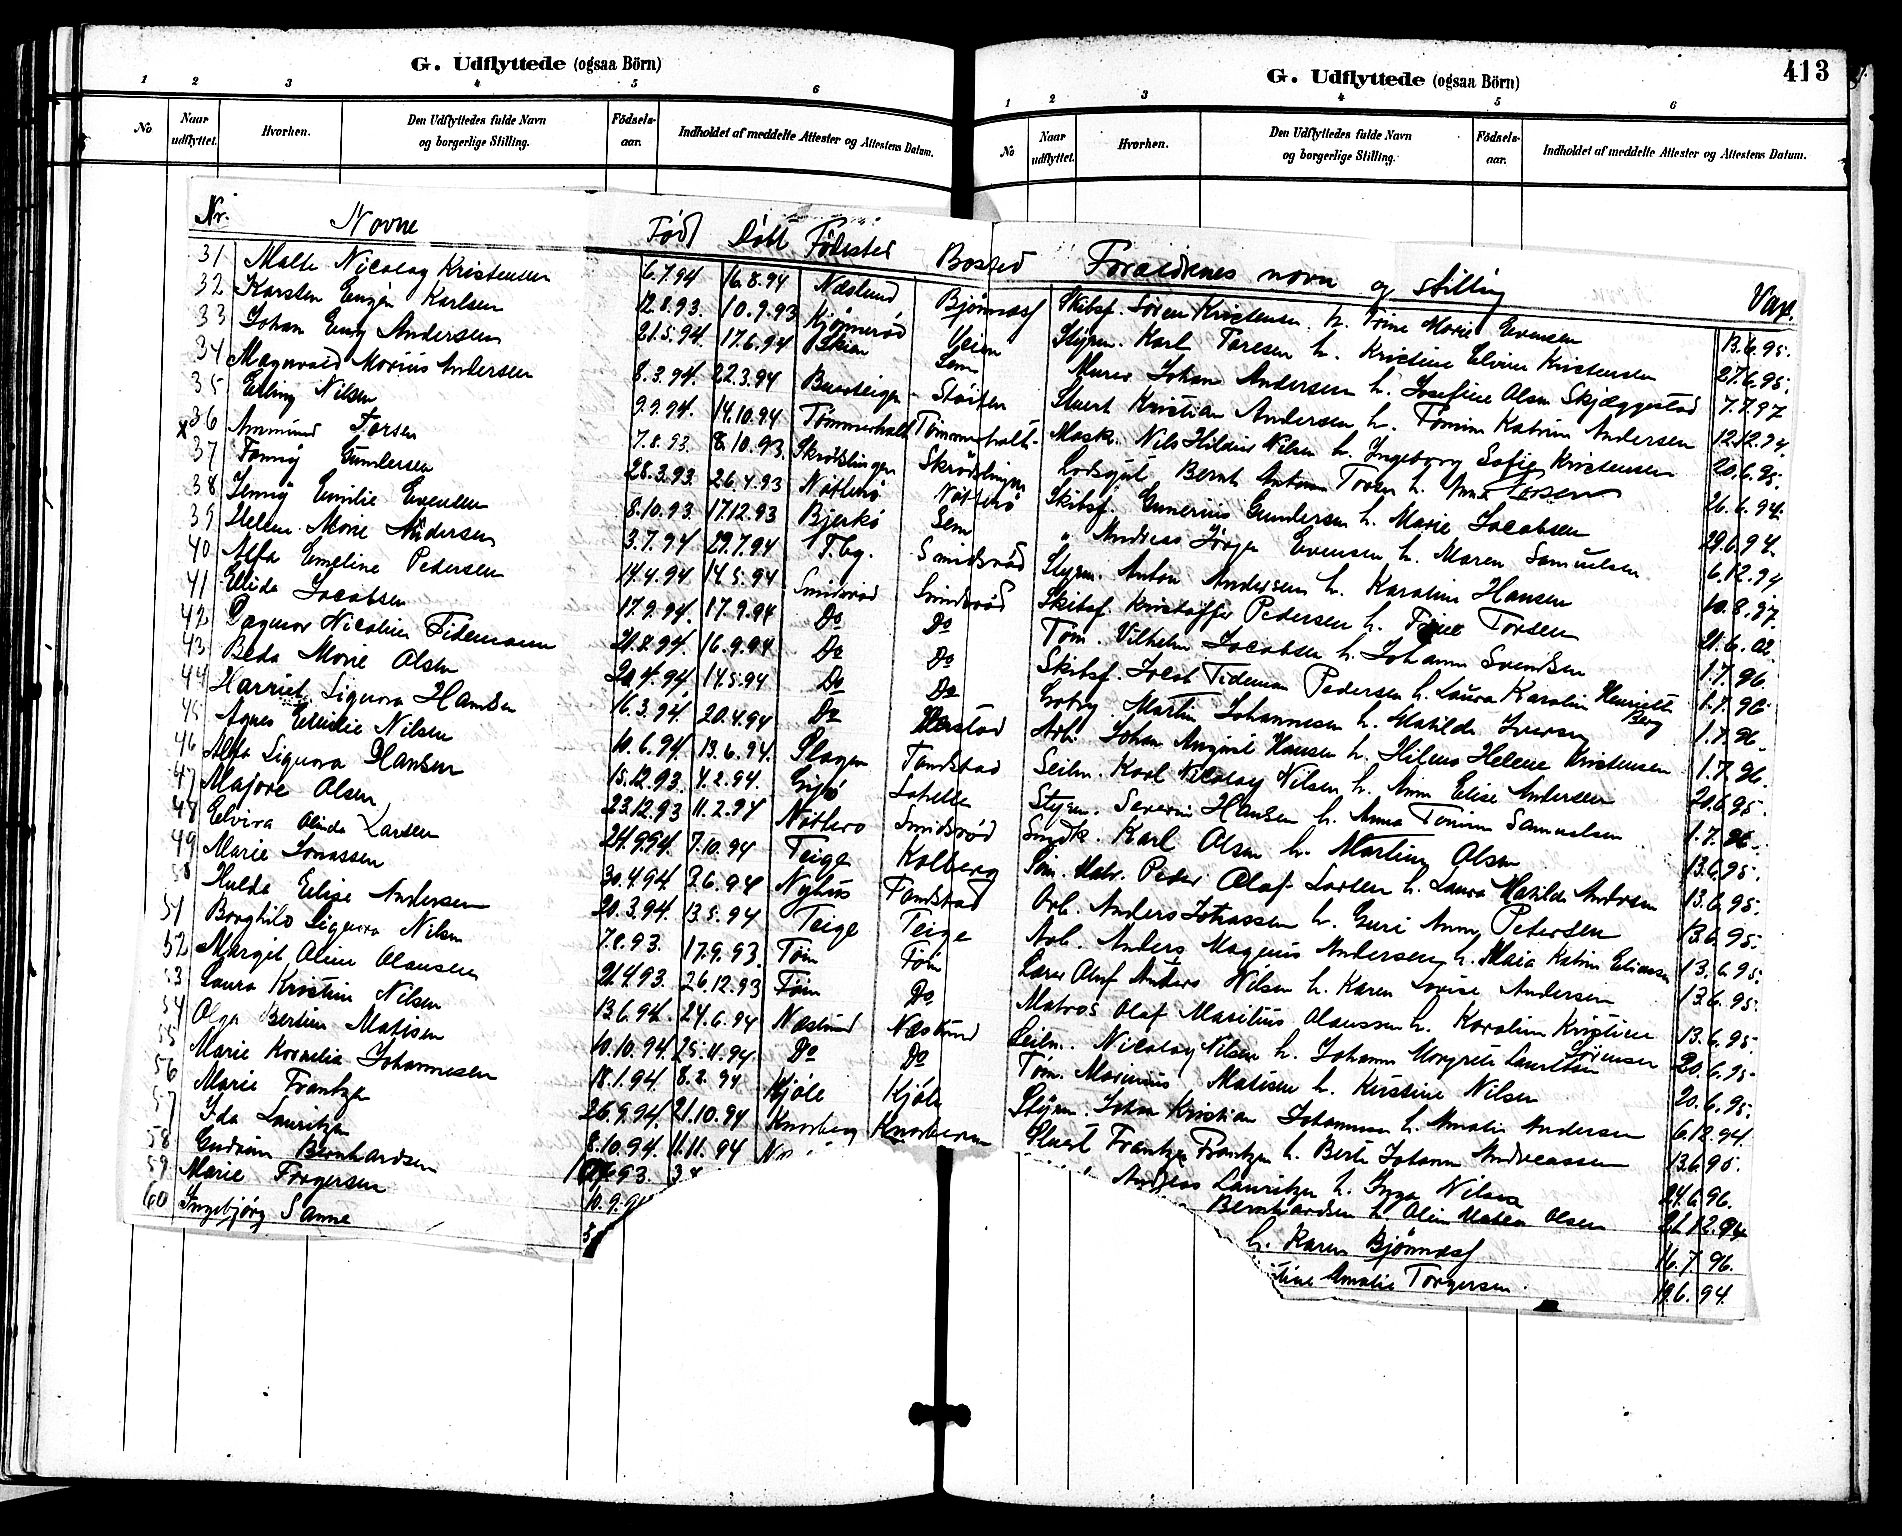 413
G. Udflyttede (ogsaa Börn)
1 2 3 4 5 6
No Naar udflyttet. Hvorhen. Den Udflyttedes fulde Navn og borgerlige Stilling. Födsels-aar. Indholdet af meddelte Attester og Attestens Datum.
G. Udflyttede (ogsaa Börn)
1 2 3 4 5 6
No Naar udflyttet. Hvorhen. Den Udflyttedes fulde Navn og borgerlige Stilling. Födsels-aar. Indholdet af meddelte Attester og Attestens Datum.
Nr. Navne Född Döbt Födested Bosted Foraeldrenes navn og stilling Vax.
31 Malte Nicolay Kristensen 6.7.94 16.8.94 Næslund Bjönnæsf Skibsf. Sören Kristensen h. Trine Marie Evensen 13.6.95.
32 Karsten Eugen Karlsen 12.8.93. 10.9.93 Kjönneröd Veien Styrm. Karl Taresen h. Kristine Elvine Kristensen 27.6.95.
33 Johan Andersen 21.5.94. 17.6.94 Skien Sem Murer Johan Andersen h. Josefine Olsen Skjæggestad 7.7.97
34 Magnvald Marius Andersen 8.3.94. 22.3.94 Stuert Kristian Andersen h. Tomine Katrine Andersen 12.12.94.
35 Erling Nilsen 9.9.94. 14.10.94 Tömmerholt Tömmerholt Mask. Nils Hildus Nilsen h. Ingeborg Sofie Kristensen 20.6.95.
x 36 Ammund Torsen 7.8.93. 8.10.93. Lodsgut Bernt Anton Toren h. Anna Larsen 26.6.94.
37 Fanny Gundersen 28.3.93. 26.4.93 Nötterö Nötterö Skibsf. Gunerius Gundersen h. Marie Jacobsen 29.6.94.
38 Jenny Emilie Evensen 8.10.93. 17.12.93 Bjerkö Sem " Andreas Jörgen Evensen h. Maren Samuelsen 6.12.94
39 Helene Marie Andersen 3.7.94 29.7.94 Tbg. Smidsröd Styrm. Anton Andersen h. Karoline Hansen 10.8.97.
40 Alfa Emeline Pedersen 14.4.94 14.5.94 Smidsröd Smidsröd Skibsf. Kristoffer Pedersen h. Trine Torsen 21.6.02.
41 Elida Jacobsen 17.9.94. 17.9.94 Do Do Töm. Vilhelm Jacobsen h. Johanne Svendsen 1.7.96.
42 Dagmar Nicoline Tidemann 21.8.94. 16.9.94 Do Do Skibsf. Jacob Tideman Pedersen h. Laura Karoline Henriette Berg 1.7.96
43 Beda Marie Olsen 20.4.94. 14.5.94 Do Do Martin Johannesen h. Matilde Iversen 1.7.96.
44 Harriet Signora Hansen 16.3.94. 20.4.94 Do Arb. Johan August Hansen h. Hilens Helene Kristensen 1.7.96.
45 Agnes Emilie Nilsen 10.6.94. 13.6.94. Slagen Tandstad Seilm. Karl Nicolay Nilsen h. Anne Elise Andersen 20.6.95.
46 Alfa Signora Hansen 15.12.93. 4.2.94. Styrm. Severin Hansen h. Anna Tomine Samuelsen 1.7.96.
47 Majore Olsen 23.12.93 11.2.94 Nötterö Smidsröd Smedk. Karl Olsen h. Martine Olsen 13.6.95.
48 Elvira Olinda Larsen 24.9.94. 7.10.94 Teige Kolberg Söm. Matr. Peder Olaf Larsen h. Laura Matilde Andersen 13.6.95.
49 Marie Jonassen 30.4.94 3.6.94 Nyhus Tandstad Arb. Anders Jonassen h. Guri Anne Petersen 13.6.95.
50 Hulda Elise Andersen 20.3.94. 13.5.94 Teige Teige Arb. Anders Magnus Andersen h. Maia Katrine Eliassen 13.6.95.
51 Borghild Signora Nilsen 7.8.93. 17.9.93. Töin Töin Lærer Oluf Anders Nilsen h. Karen Lovise Andersen 13.6.95.
52 Margit Oline Olausen 21.4.93. 26.12.93 Töin Do Matros Olaf Masilius Olaussen h. Karoline Kristine Sörensen 13.6.95.
53 Laura Kristine Nilsen 13.6.94. 24.6.94 Næslund Næslund Seilm. Nicolay Nilsen h. Johanne Margrete Lauritsen 20.6.95.
54 Olga Bertine Matisen 10.10.94. 25.11.94. Do Do Töm. Marinius Matisen h. Kirstine Nilsen 20.6.95.
55 Marie Kornelia Johannesen 18.1.94. 8.2.94 Kjöle Kjöle Styrm. Johan Kristian Johannesen h. Amalie Andersen 6.12.94.
56 Marie Frantzen 26.9.94. 21.10.94 Knarberg Knarberg Stuert Frantze Frantzen h. Berte Johanne Andreassen 13.6.95.
57 Ida Lauritzen 8.10.94. 11.11.94 N Andreas Lauritzen h. Inga Nilsen 24.6.96.
58 Gudrun Bernhardsen 93. 3 Bernhardsen h. Oline Matea Olsen 21.12.94
59 Marie Torgersen 10.9.9 h. Karen Bjönnæsf 16.7.96.
60 Ingebjörg Sanne 3 tine Amalie Torgersen. 19.6.94.